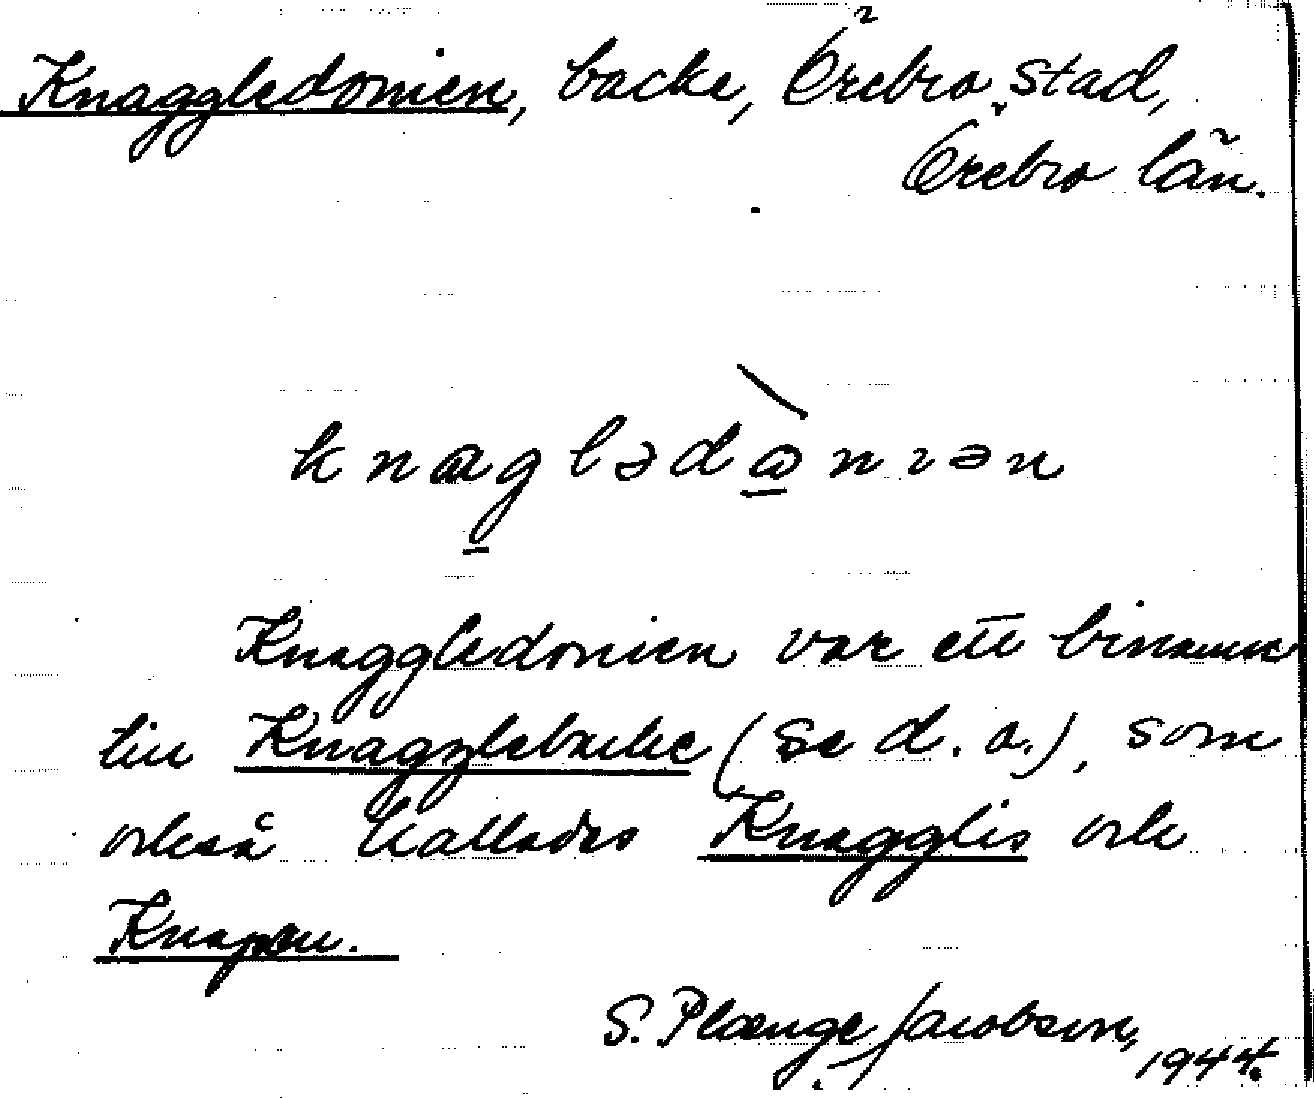 Knaggledonien, backe, Örebro stad,
Örebro län.
knaglədὰnıən
Knaggledonien var ett binamn
till Knagglebacke (se d. o.), som
också kallades Knagglis och
Knapen.
S. Plænge Jacobson,
1944.